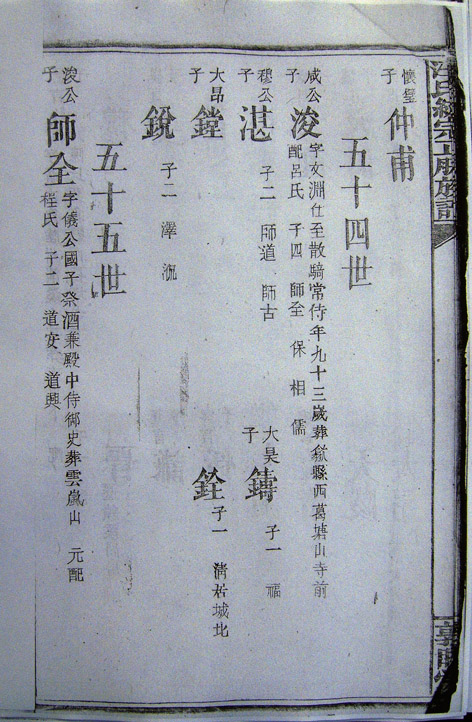 汪氏統宗正脈族譜
懷璧子 仲甫
五十四世
咸公子 浚 字文淵仕至散騎常侍年九十三歲葬歙縣西葛塘山寺前
配呂氏 子四 師全 保 相 儒
穆公子 湛 子二 師道 師古
大昊子 鑄 子一 福
大昂子 鏜
銓 子一 清 居城北
銳 子二 澤
五十五世
浚公子 師全 字儀公國子祭酒兼殿中侍御史葬雲嵐山 元配
程氏 子二 道安 道興